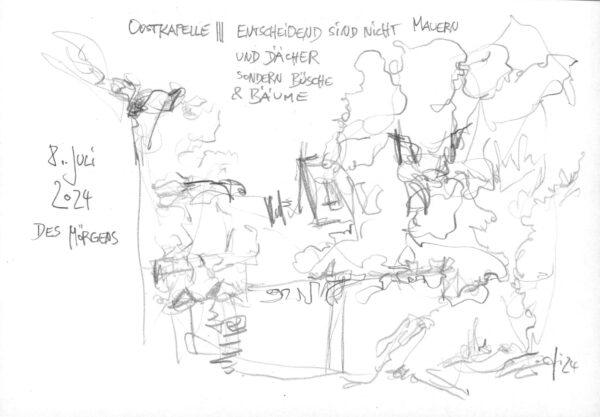 OOSTKAPELLE III ENTSCHEIDEND SIND NICHT MAUERN
UND DÄCHER
SONDERN BÜSCHE
& BÄUME
8. Juli
2024
DES MÖRGENS
24